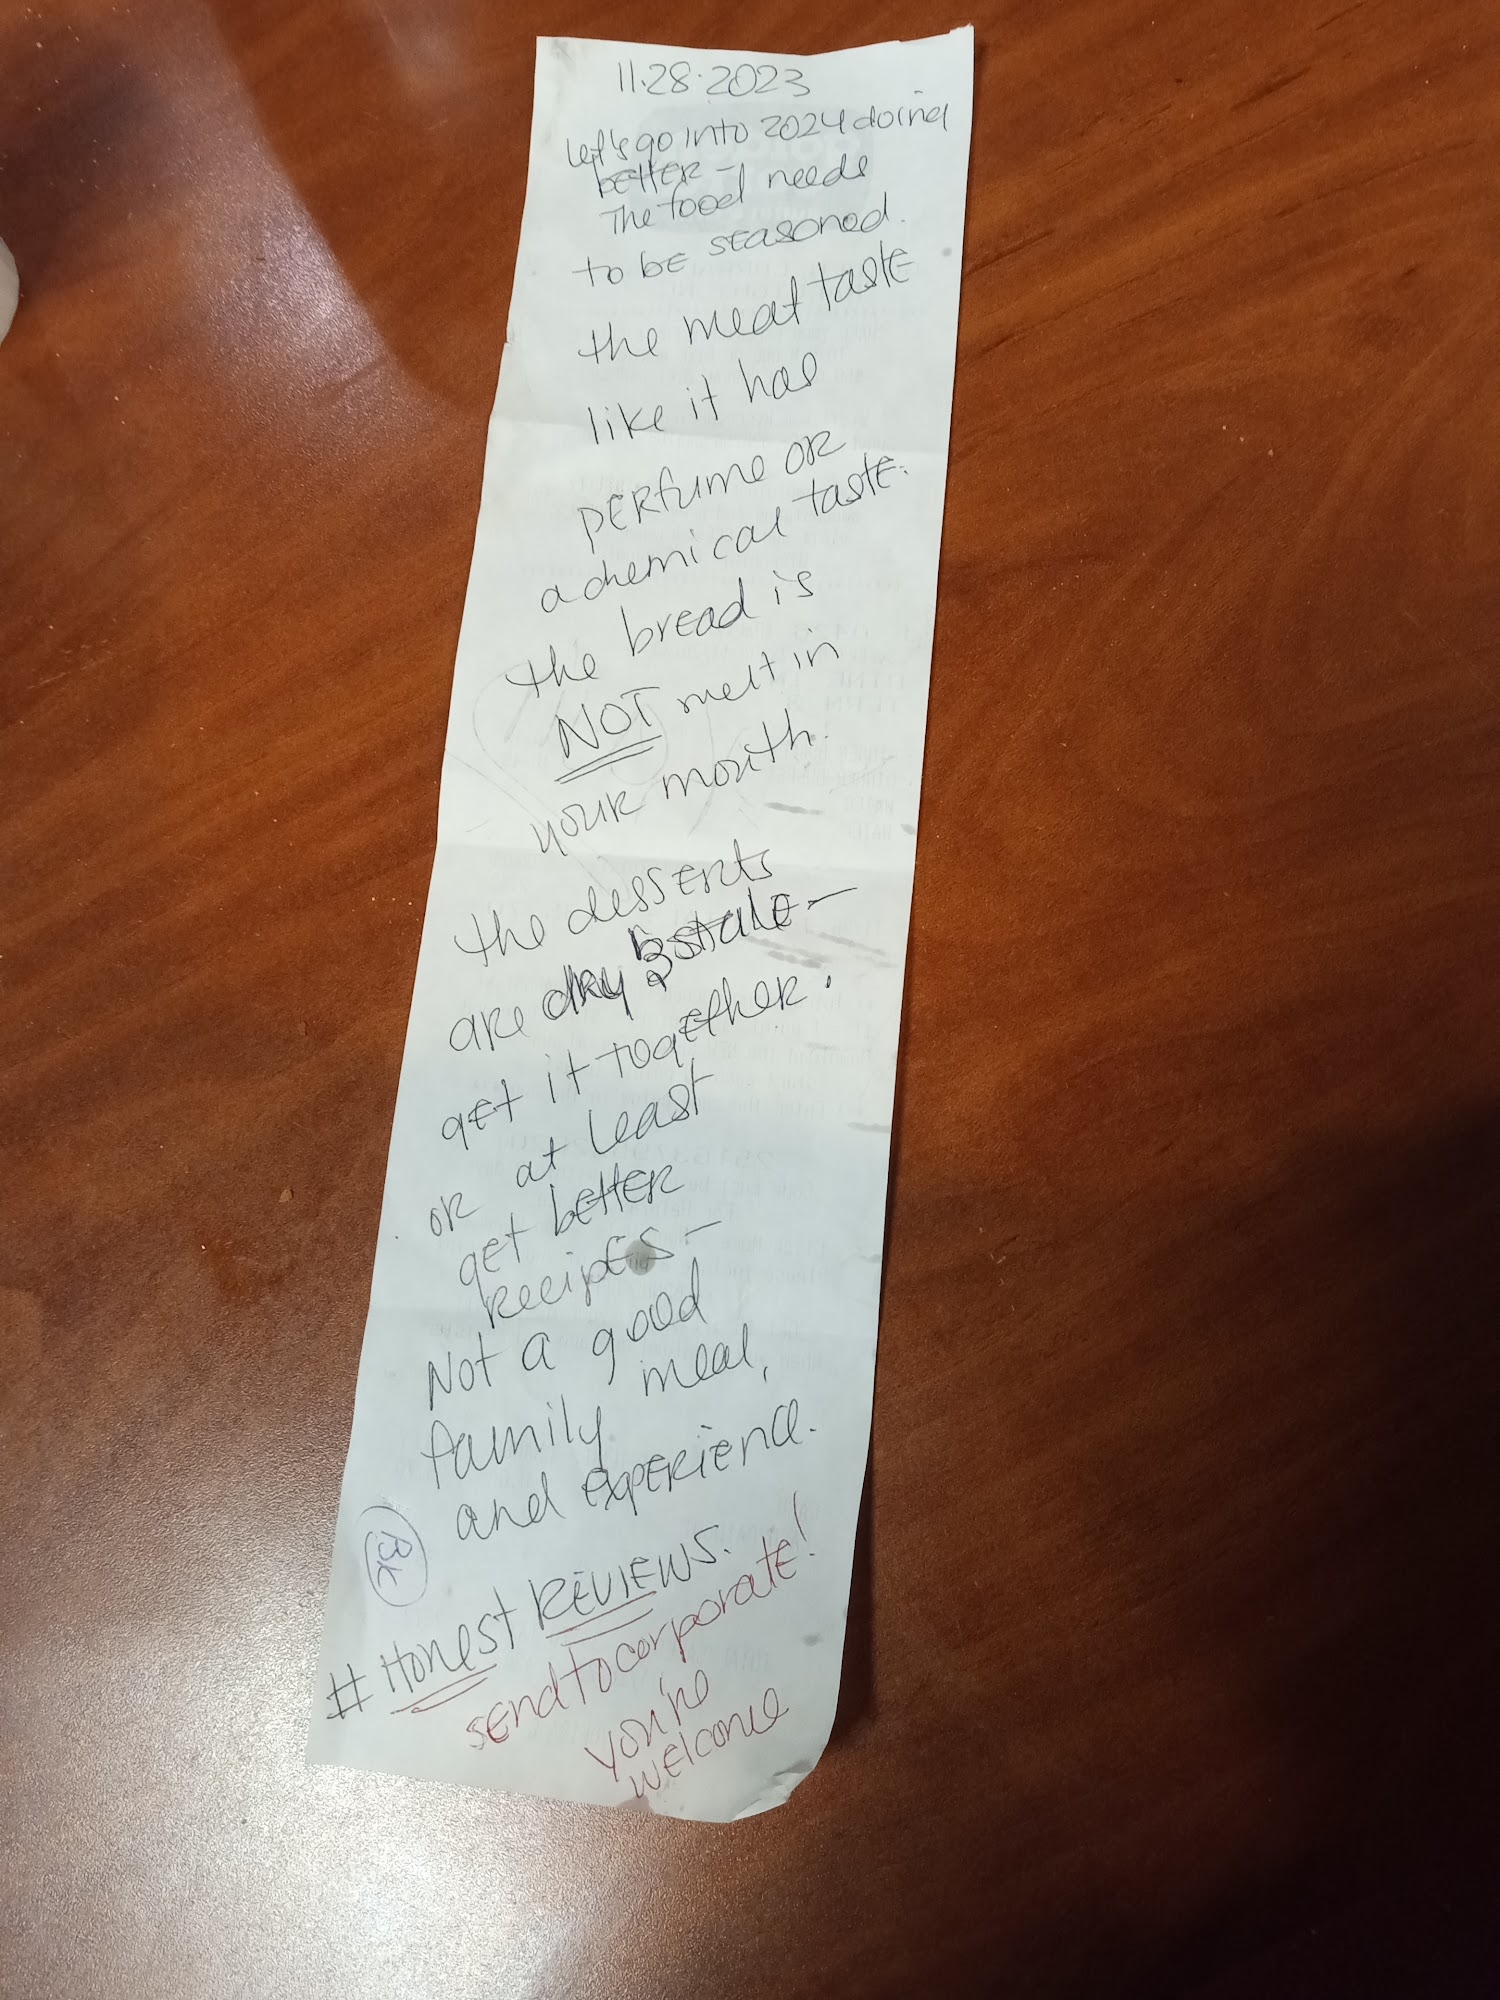 11.28.2023
Let's go into 2024 doing
better -
The food needs
to be seasoned.
the meat taste
like it has
perfume or
a chemical taste.
the bread is
NOT melt in
your mouth.
the desserts
are dry & stale -
get it together.
or at least
get better
recipes -
Not a good
family meal,
and experience.
BK
# Honest REVIEWS.
send to corporate!
you're
welcome